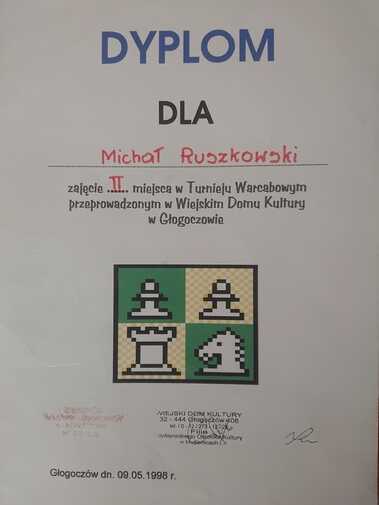 DYPLOM
DLA
Michał Ruszkowski
zajęcie ..II.. miejsca w Turnieju Warcabowym
przeprowadzonym w Wiejskim Domu Kultury
w Głogoczowie
WIEJSKI DOM KULTURY
32 - 444 Głogoczów 408
Filia
Ośrodka Kultury
w Myślenicach
Głogoczów dn. 09.05.1998 r.